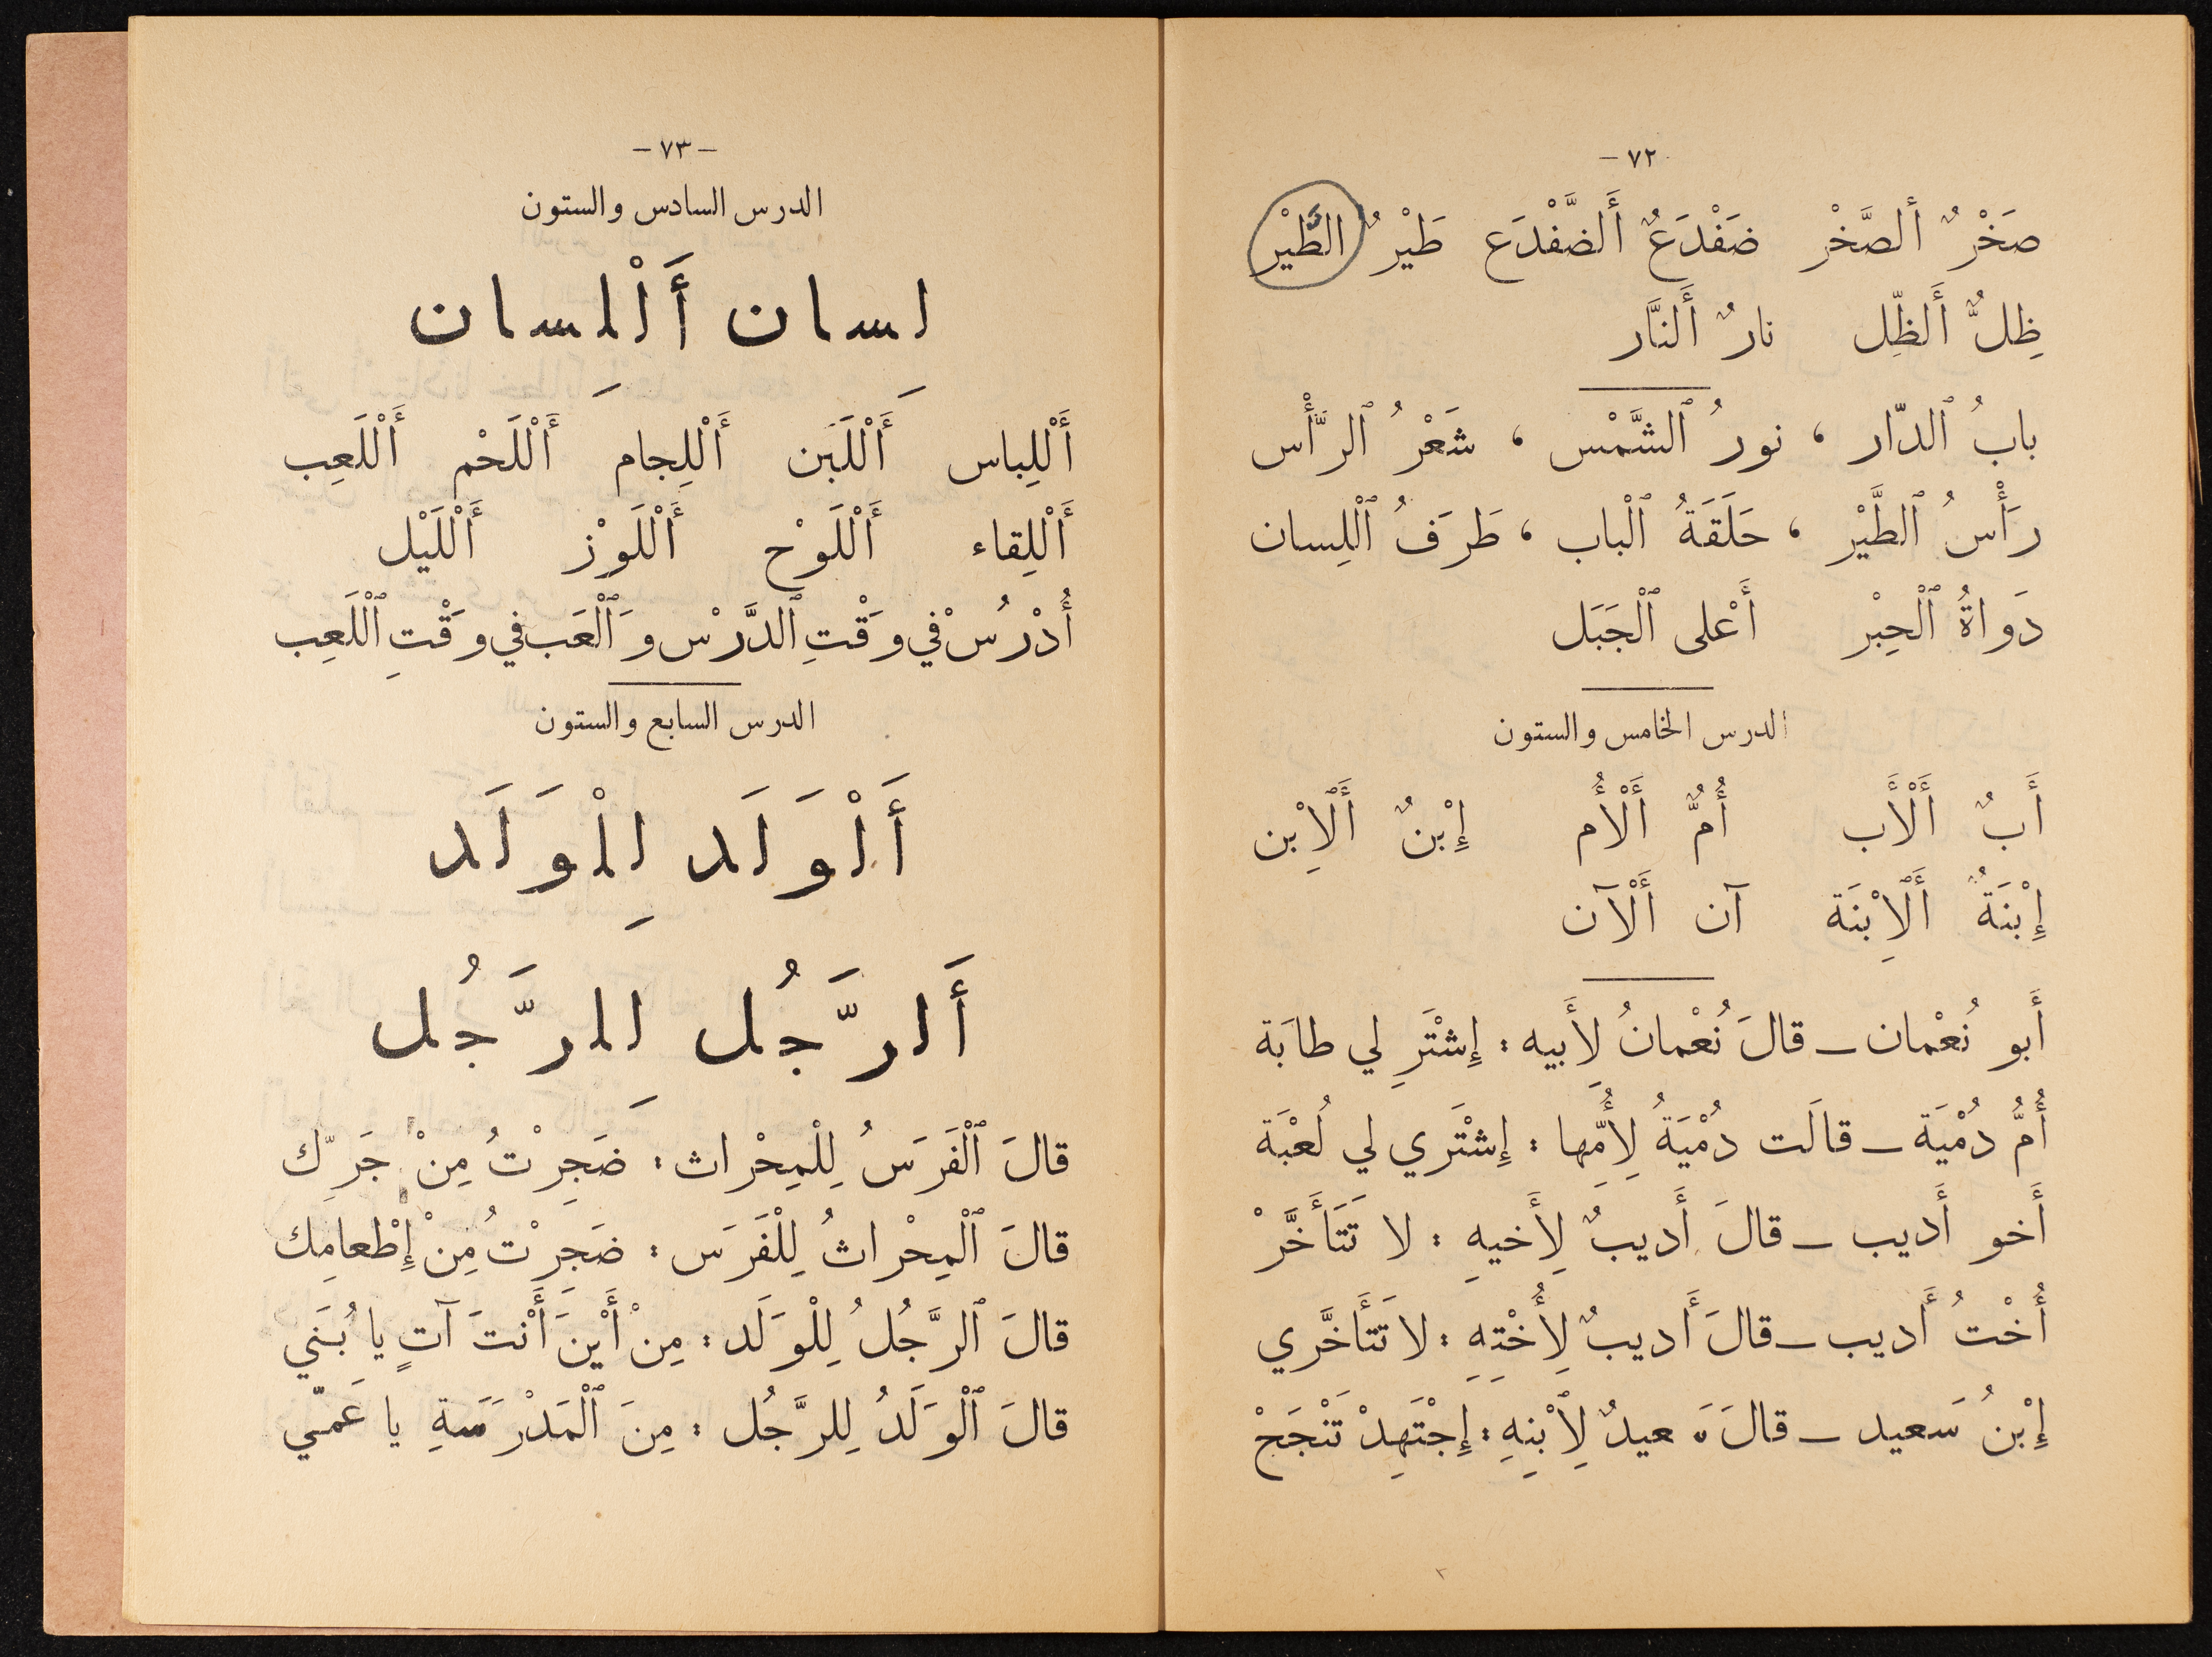 ٧٢ –
صَخْرٌ ألصَّخْر ضَفْدَعٌ أَلضَّفْدَع طَيْرٌ الطَّيْر
ظِلٌّ أَلظِّل نارٌ أَلنَّار
بابُ ٱلدّار ، نورُ ٱلشَّمْس ، شَعْرُ ٱلرَّأْس
رَأْسُ ٱلطَّيْر ، حَلَقَةُ ٱلْباب ، طَرَفُ ٱلْلِسان
دَواةُ ٱلْحِبْر أَعْلى ٱلْجَبَل
الدرس الخامس والستون
أَبٌ أَلْأَب أُمٌّ أَلْأُم إِبْنٌ أَلِٱبْن
إِبْنَةٌ أَلِٱبْنَة آن أَلْآن
أَبو نُعْمان – قالَ نُعْمانُ لِأَبيه : إِشْتَرِ لي طابَة
أُمُّ دُمْيَة – قالَت دُمْيَةُ لِأُمِّها : إِشْتَري لي لُعْبَة
أَخو أَديب – قالَ أَديبٌ لِأَخيهِ : لا تَتَأَخَّرْ
أُخْتُ أَديب – قالَ أَديبٌ لِأُخْتِهِ : لا تَتَأَخَّري
إِبْنُ سَعيد – قالَ سَعيدٌ لِٱبْنِهِ : إِجْتَهِدْ تَنْجَحْ
– ٧٣ –
الدرس السادس والستون
لِسان أَلْلِسان
أَلْلِباس أَلْلَبَن أَلْلِجام أَلْلَحْم أَلْلَعِب
أَلْلِقاء أَلْلَوْح أَلْلَوْز أَلْلَيْل
أُدْرُسْ في وَقْتِ ٱلدَّرْس وَٱلْعَب في وَقْتِ ٱلْلَعِب
الدرس السابع والستون
أَلْوَلَد لِلْوَلَد
أَلرَّجُل لِلرَّجُل
قالَ ٱلْفَرَسُ لِلْمِحْراث : ضَجِرْتُ مِنْ جَرِّك
قالَ ٱلْمِحْراثُ لِلْفَرَس : ضَجِرْتُ مِنْ إِطْعامِك
قالَ ٱلرَّجُلُ لِلْوَلَد : مِنْ أَيْنَ أَنْتَ آتٍ يا بُنَي
قالَ ٱلْوَلَدُ لِلرَّجُل : مِنَ ٱلْمَدْرَسَةِ يا عَمّي